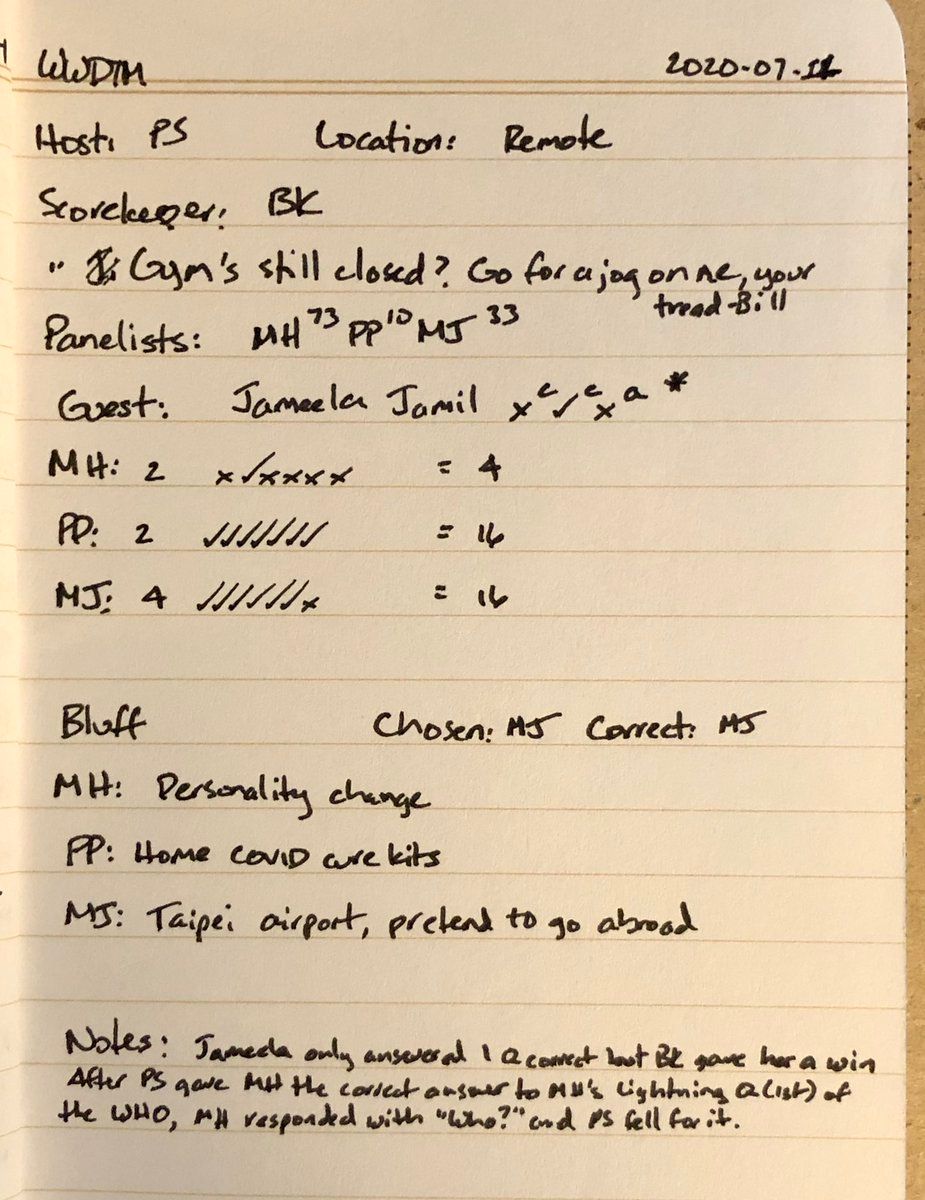 WWDTM 2020-07-11
Host: PS Location: Remote
Scorekeeper: BK
" Gym's still closed? Go for a jog on me, your
tread-Bill
Panelists: MH 73 PP 10 MJ 33
Guest: Jameela Jamil x c ✓ c x a *
MH: 2 x✓xxxx = 4
PP: 2 ✓✓✓✓✓✓✓ = 16
MJ: 4 ✓✓✓✓✓✓x = 16
Bluff Chosen: MJ Correct: MJ
MH: Personality change
PP: Home COVID cure kits
MJ: Taipei airport, pretend to go abroad
Notes: Jameela only answered 1 Q correct but BK gave her a win
After PS gave MH the correct answer to MH's Lightning Q (1st) of
the WHO, MH responded with "Who?" and PS fell for it.